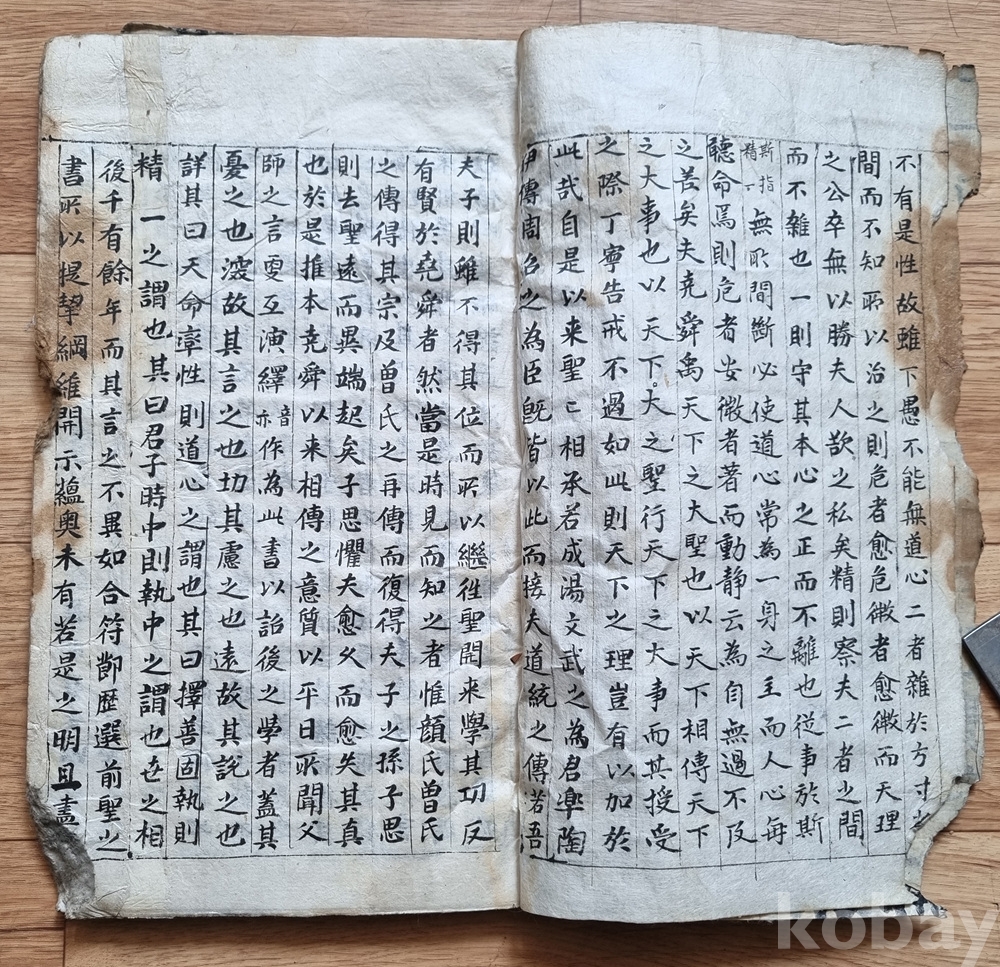 不有是性故雖下愚不能無道心二者雜於方寸之
間而不知所以治之則危者愈危微者愈微而天理
之公卒無以勝夫人欲之私矣精則察夫二者之間
而不雜也一則守其本心之正而不離也從事於斯
斯指
精一
無所間斷必使道心常為一身之主而人心每
聽命焉則危者安微者著而動静云為自無過不及
之差矣夫堯舜禹天下之大聖也以天下相傳天下
之大事也以天下之大聖行天下之大事而其授受
之際丁寧告戒不過如此則天下之理豈有以加於
此哉自是以来聖〻相承若成湯文武之為君皐陶
伊傅周召之為臣旣皆以此而接夫道統之傳若吾
夫子則雖不得其位而所以繼徃聖開来學其功反
有賢於堯舜者然當是時見而知之者惟顔氏曾氏
之傳得其宗及曾氏之再傳而復得夫子之孫子思
則去聖遠而異端起矣子思懼夫愈久而愈失其真
也於是推本堯舜以来相傳之意質以平日所聞父
師之言更互演繹
音
亦
作為此書以詔後之學者蓋其
憂之也深故其言之也切其慮之也遠故其說之也
詳其曰天命率性則道心之謂也其曰擇善固執則
精一之謂也其曰君子時中則執中之謂也世之相
後千有餘年而其言之不異如合符節歴選前聖之
書所以提挈綱維開示蘊奥未有若是之明且盡
kobay